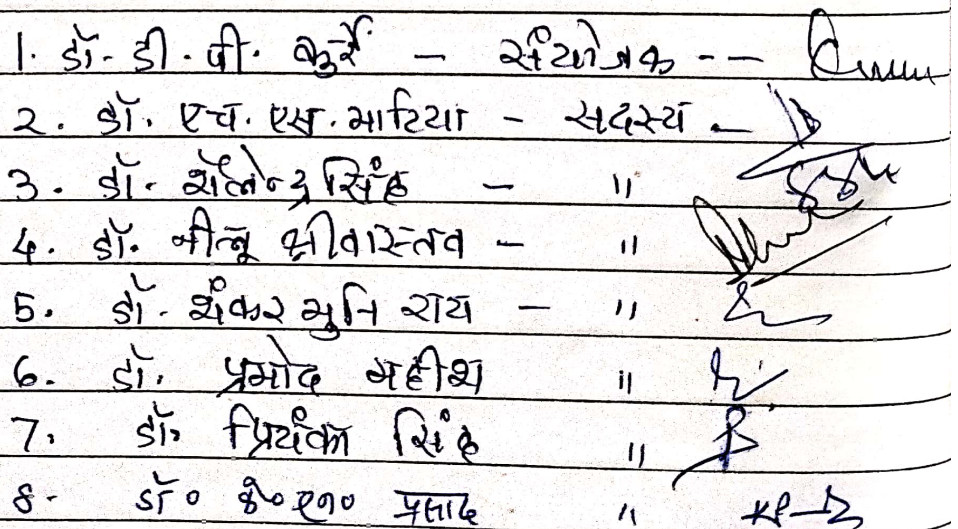 1. डॉ. डी. पी. कुर्रे - संयोजक --
2. डॉ. एच. एस. भाटिया - सदस्य -
3. डॉ. शैलेन्द्र सिंह - "
4. डॉ. नीलू श्रीवास्तव - "
5. डॉ. शंकर मुनि राय - "
6. डॉ. प्रमोद महीश "
7. डॉ. प्रियंका सिंह "
8. डॉ० के० एन० प्रसाद "